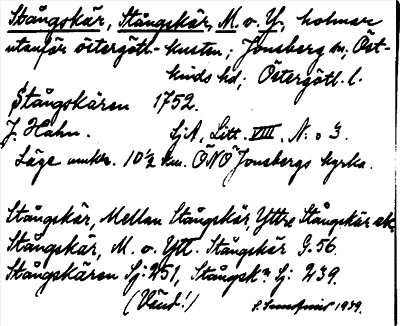 Stångskär, Stångskär, M. o. Y., holmar
utanför östergötl. kusten; Jonsberg sn; Öst-
kinds hd; Östergötl. l.
Stångskären 1752.
J. Hahn. SjA, Litt. VIII, N:o 3.
Läge omkr. 10 1/2 km. ÖNÖ Jonsbergs kyrka.
Stångskär, Mellan Stångskär, Yttre Stångskär ek.
Stångskär, M. o. Ytt. Stångskär G. 56.
Stångskären Sj: 251, Stångsk:n Sj: 239.
(Vänd!) 1939.